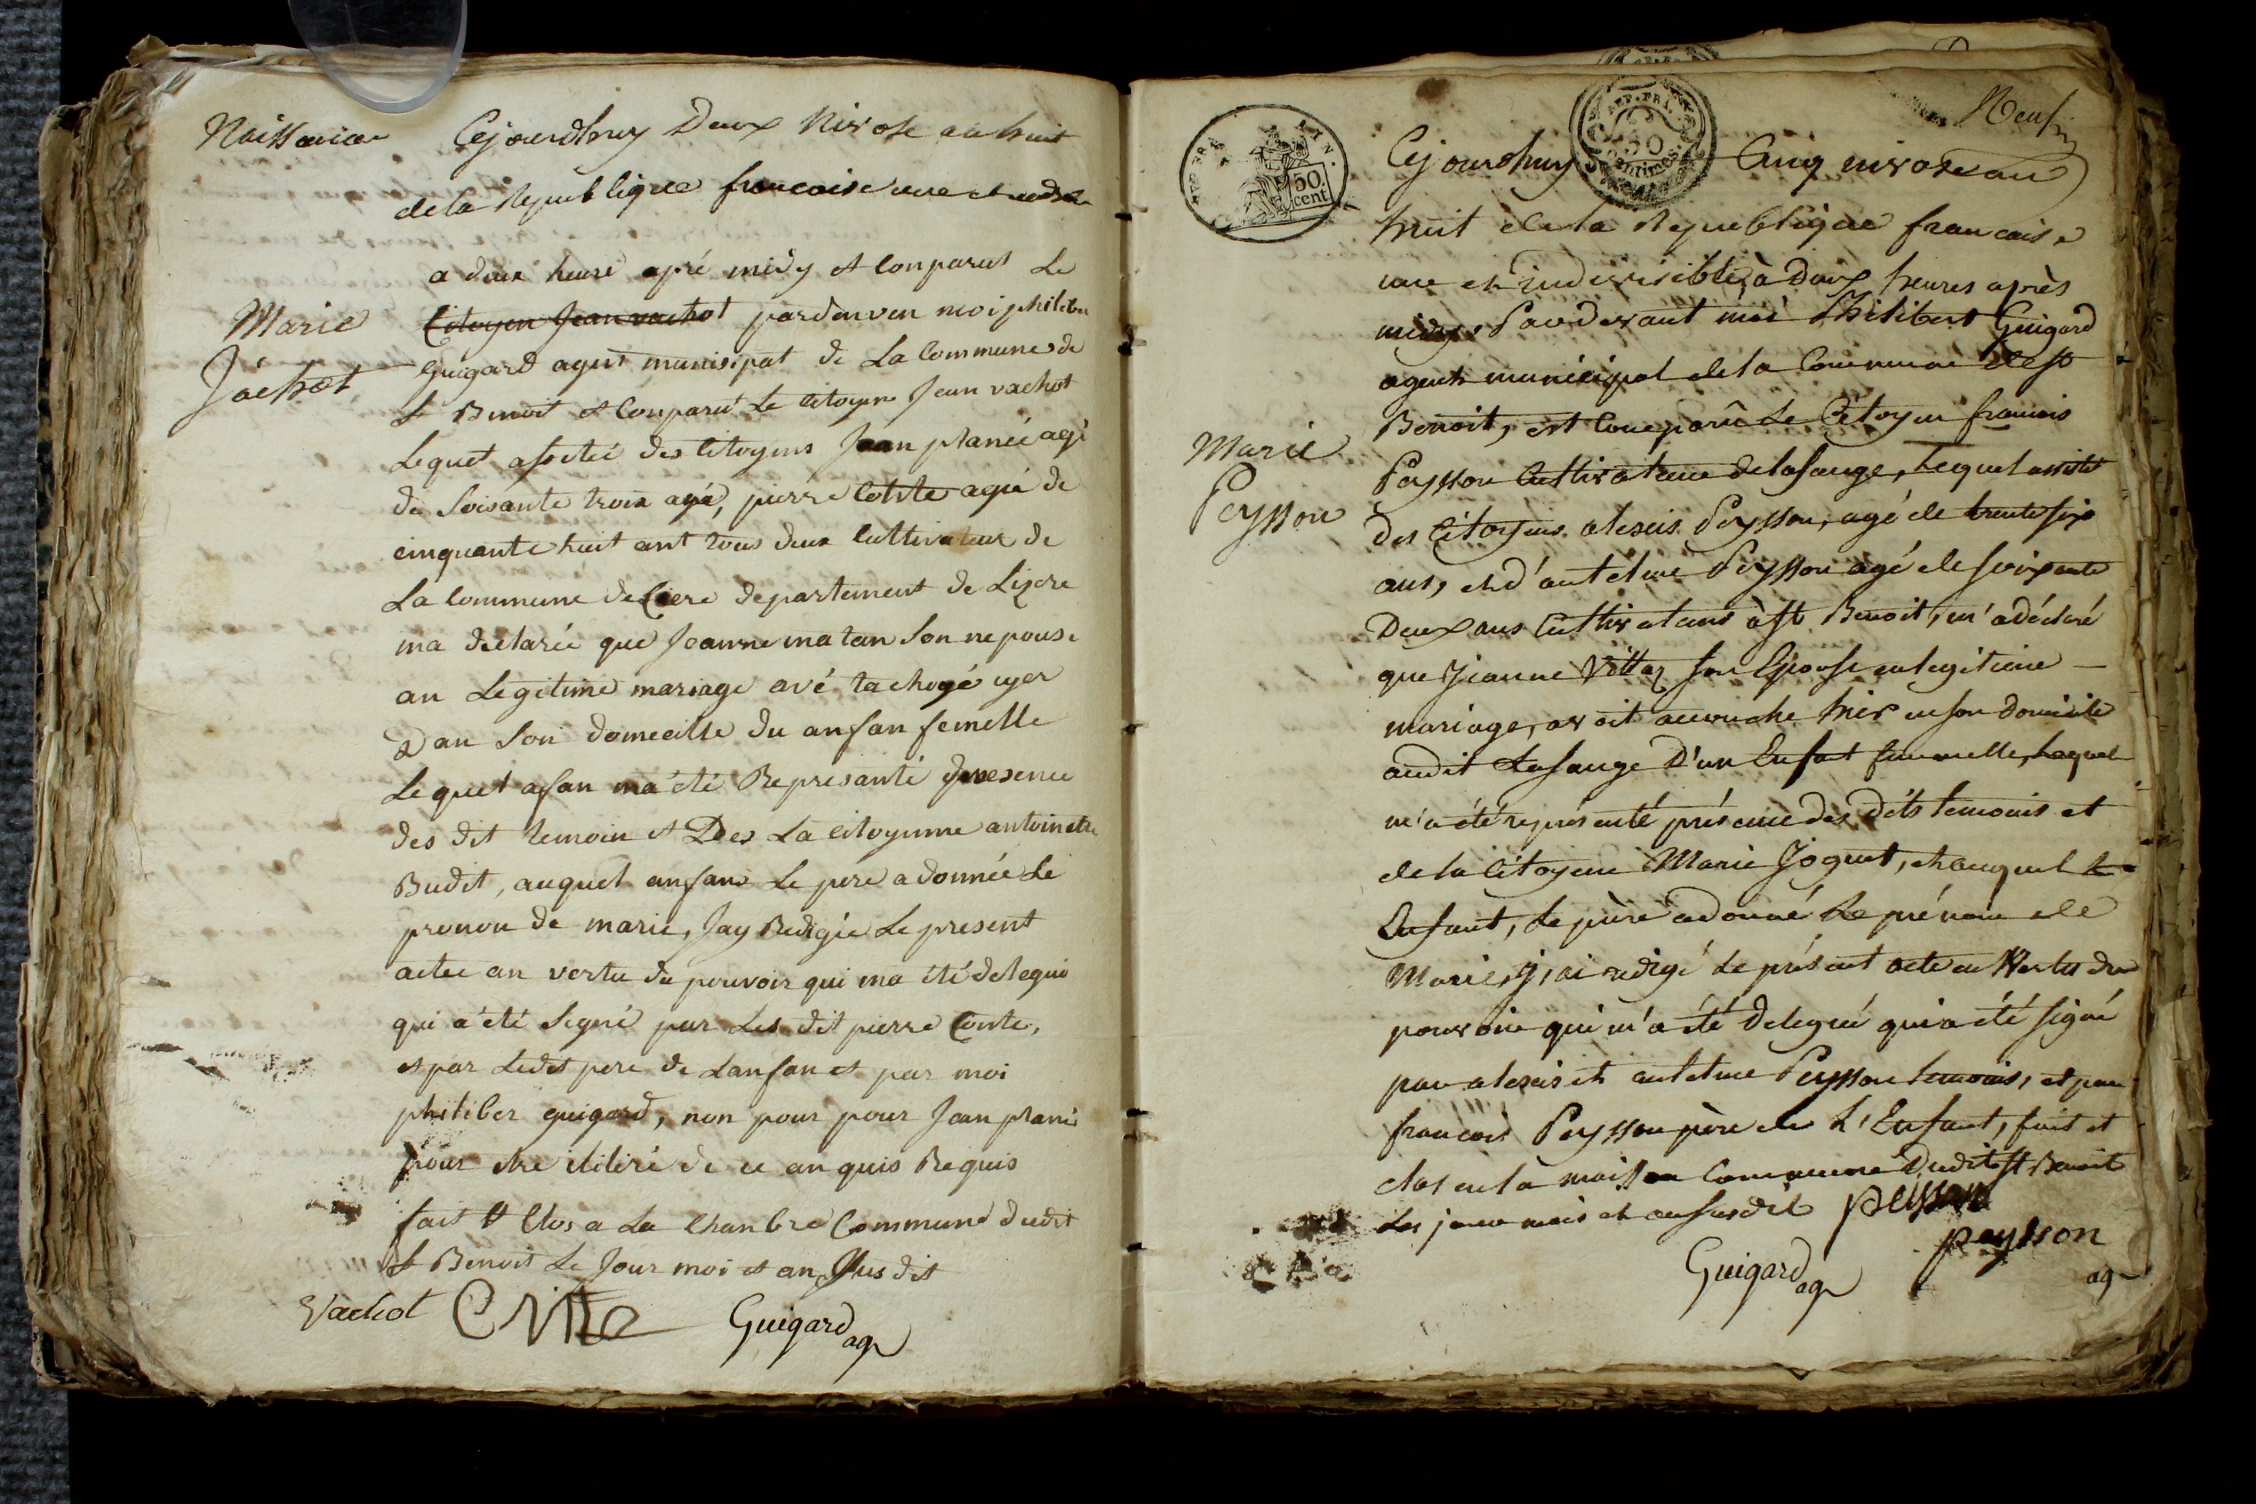 Naissance
Cejourdhuy Deux Nivose an huit
de la Republique francoise une et indi
a deux heure apré midy et Conparus Le
Citoyen Jean vachot pardenven moi philiber
Marie
Jachot
Guigard agent munisipat de La Commune de
St Benoit et Conparu Le Citoyen Jean vachot
Lequel asistée des Citoyens Jean planée agé
de Soisante trois agé, pierre Cotte agée de
cinquante huit ant tous deux Cultivateur de
La Commune de Ciere departement de Lizere
ma declarée que Jeanne matan Son nepouse
an Legitime mariage avé tachogé yer
Dan Son domecille du anfan femelle
Lequel afan ma été Represanté presence
des dit temoin et Des La citoyenne antoinette
Budit, auquel anfans Le pere a donnée Le
pronon de marie, Jay Redigée Le present
actee an vertu du pouvoir qui ma été delegué
qui a été Signé par Les dit pierre Conte,
et par Ledet pere de Lanfan et par moi
philiber guigard, non pour pour Jean planée
pour etre iliteré de ce an quis Requis
fait et Clos a La Chanbre Commune dudit
St Benoit Le Jour moi et an Susdit
Vachot Cotte Guigard ag
REP. FRA.
50
cent.
REP. FRA.
50
centimes
Neuf
Cejourdhuy Cinq nivose an
huit de la Republique francaise
une et indivisible, à Deux heures après
midy, Pardevant moi Philibert Guigard
agent municipal de la Commune de St
Benoit, est Comparû Le Citoyen francois
Marie
Peysson
Peysson Cultivateur de lasauge, Lequel assisté
des Citoyens alexis Peysson, agé de trente six
ans, et d'antelme Peysson agé de soixante
Deux ans Cultivateurs à St Benoit, m'a déclaré
que Jeanne Vittoz son Epouse en legitime
mariage, avoit accouche hier en son domicile
audit Lasauge D'un Enfant femmelle, Lequel
m'a été représenté présence des dits temoins et
de la Citoyene Marie Joguet, et auquel
Enfant, Le père a donné Le prénom de
Marie, j,ai redigé Le présent acte en Vertu du
pouvoir qui m'a été Delegué qui a été signé
par alexis et antelme Peysson temoins, et par
francois Peysson père de L'Enfant, fait et
clos en la maison Commune Dudit St Benoit
Les jour mois et an susdit Peysson
peysson
Guigard ag
ag